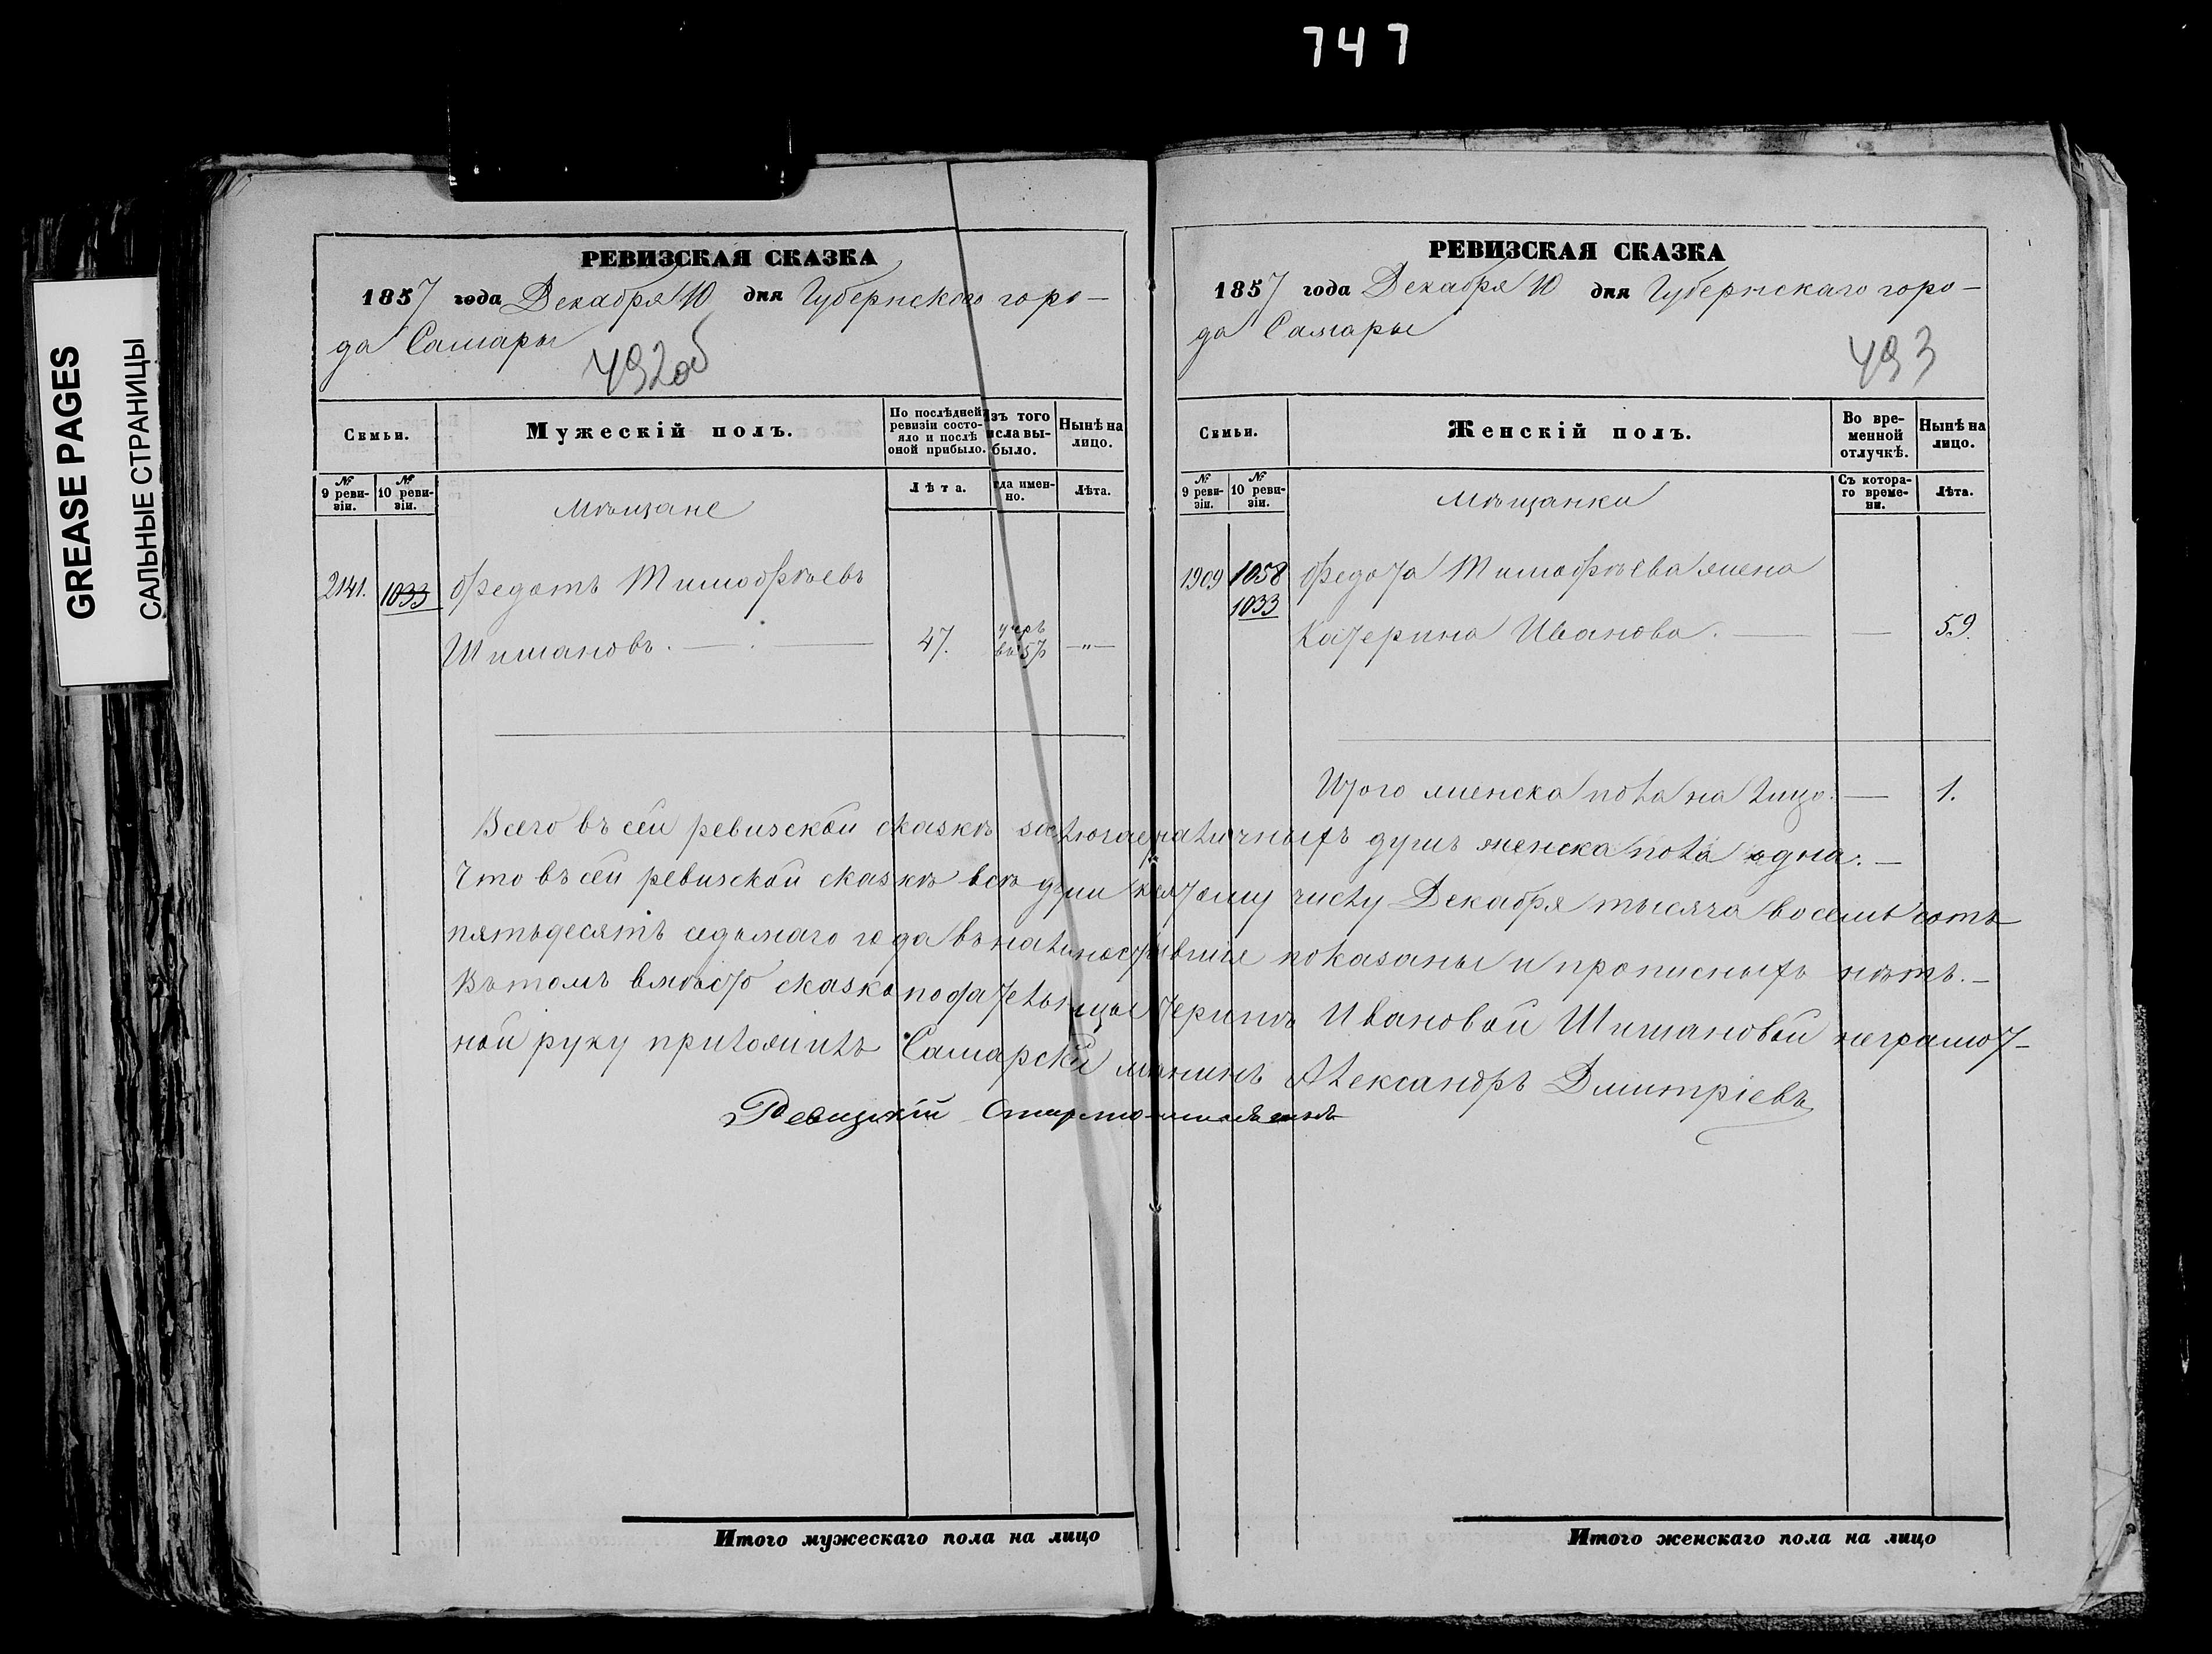 747
GREASE PAGES
САЛЬНЫЕ СТРАНИЦЫ
РЕВИЗСКАЯ СКАЗКА
1857 года Декабря 10 дня Губернскаго горо-
да Самары
492об
Семьи.
Мужескій полъ.
По послѣдней ревизіи состояло и послѣ оной прибыло.
Изъ того числа выбыло.
Нынѣ на лицо.
№ 9 ревизіи.
№ 10 ревизіи.
Мѣщане
Лѣта.
Когда именно.
Лѣта.
2141. 1033 Федотъ Тимофѣевъ
Шишановъ. 47. умеръ въ 57 —"—
РЕВИЗСКАЯ СКАЗКА
1857 года Декабря 10 дня Губернскаго горо-
да Самары
493
Семьи.
Женскій полъ.
Во временной отлучкѣ.
Нынѣ на лицо.
№ 9 ревизіи.
№ 10 ревизіи.
Мѣщанки
Съ котораго времени.
Лѣта.
1909 1058 Федота Тимофѣева жена
1033
Катерина Иванова. — 59.
Итого женска пола на лицо. — 1.
Всего въ сей ревизской сказкѣ заключается наличныхъ душъ женска пола одна. —
Что въ сей ревизской сказкѣ всѣ души къ числу Декабря тысяча восемь сотъ
пятьдесятъ седьмаго года въ наличности показаны и прописныхъ нѣтъ. —
Въ томъ вмѣсто сказкоподательницы Катеринѣ Ивановой Шишановой неграмот-
ной руку приложилъ Самарскій мѣщанинъ Александръ Дмитріевъ
Ревизскій
Итого мужескаго пола на лицо
Итого женскаго пола на лицо